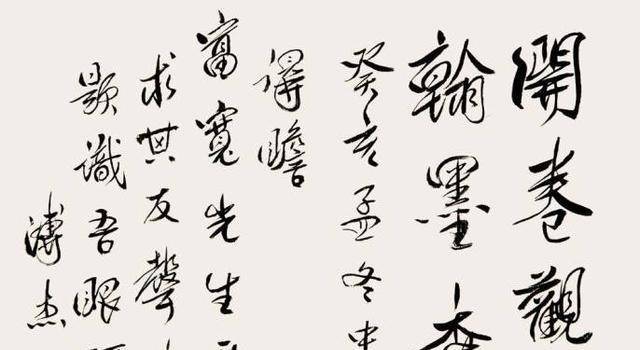 開卷觀
翰墨
癸亥孟冬
得瞻
富寬先生
求其友聲
題識吾眼
溥杰